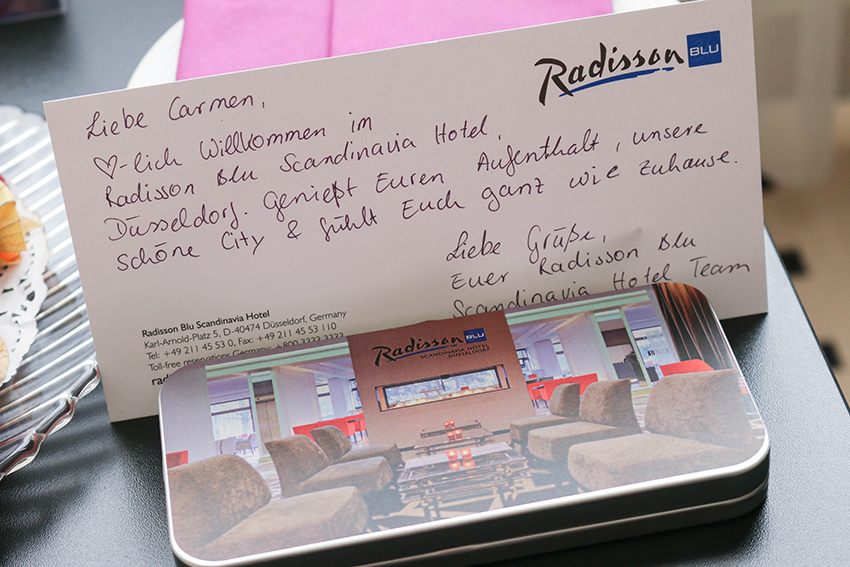 Radisson BLU
Liebe Carmen,
♡-lich Willkommen im
Radisson Blu Scandinavia Hotel,
Düsseldorf. Genießt Euren Aufenthalt, unsere
schöne City & fühlt Euch ganz wie zuhause.
Liebe Grüße,
Euer Radisson Blu
Scandinavia Hotel Team
Radisson Blu Scandinavia Hotel
Karl-Arnold-Platz 5, D-40474 Düsseldorf, Germany
Tel: +49 211 45 53 0, Fax: +49 211 45 53 110
Toll-free reservations Germany: +800 3333 3333
Radisson BLU
SCANDINAVIA HOTEL
DÜSSELDORF